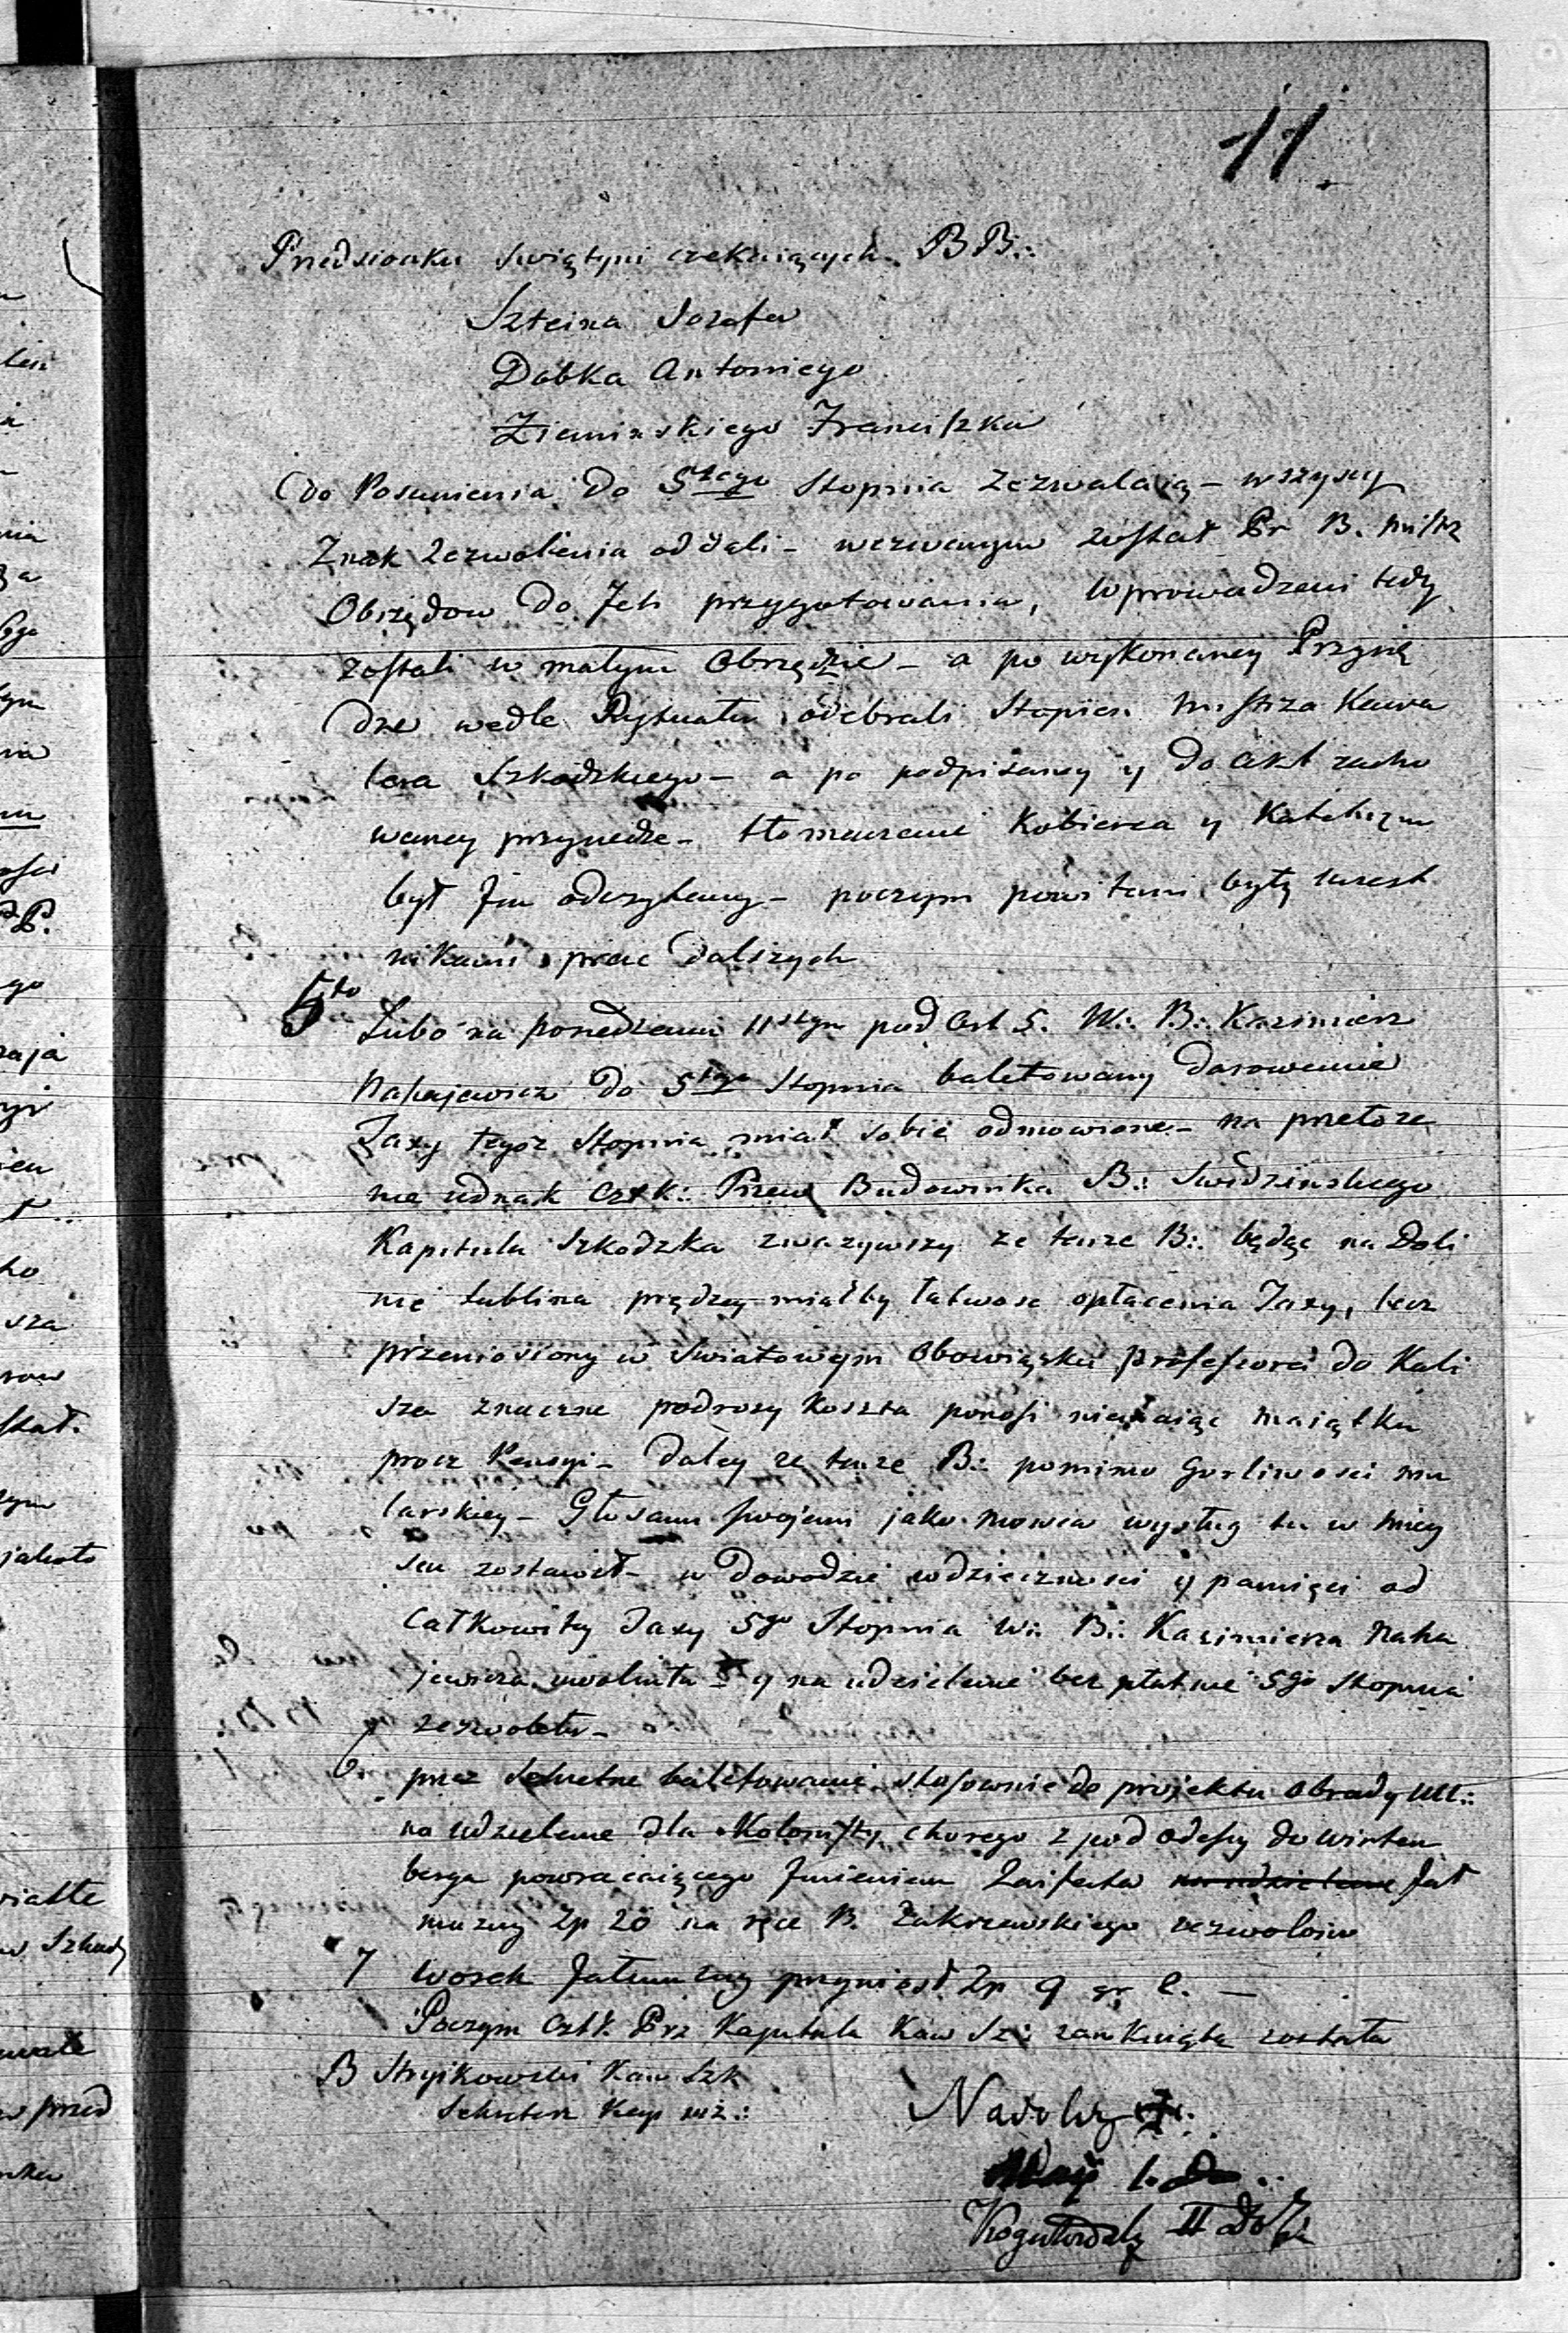 11.
Przedsionku Swiątyni czekaiących BB∴
Szteina Jozefa
Dąbka Antoniego
Ziemińskiego Franciszka
do Posunienia do 5tego Stopnia zezwalaią – wszyscy
Znak zezwolenia oddali – wezwanym został Pr B. Mistrz
Obrzędow do Ich przygotowania, wprowadzeni tedy
zostali w małym Obrzędzie – a po wykonaney Przysię
dze wedle Rytuału odebrali Stopien Mistrza Kawa
lera Szkodzkiego – a po podpisaney y do Akt zacho
waney przysiedze – tłomaczenie Kobierca y Katechizm
był Im odczytany – poczym powitani byli uczest
nikami prac dalszych
5to Lubo na posiedzeniu 11stym pod Art 5. W∴ B∴ Kazimierz
Nahajewicz do 5tego Stopnia baletowany darowanie
Taxy tegoz Stopnia miał sobie odmowione – na przełoze
nie iednak Człk: Przew Budownika B∴ Swidzinskiego
Kapituła Szkodzka zwazywszy ze tenze B∴ będąc na Doli
nie Lublina prędzey miałby łatwosc opłacenia Taxy, lecz
przeniosiony w Swiatowym Obowiązku Professora do Kali
sza znaczne podrozy Koszta ponosi niemaiąc maiątku
procz Pensyi – daley ze tenze B∴ pomimo Gorliwosci mu
larskiey – Głosami swojemi jako Mowca wysług tu w miey
scu zostawił – w dowodzie wdzięcznosci y pamięci od
Całkowitey Taxy 5go Stopnia W∴ B∴ Kazimierza Naha
jewicza uwolniła – y na udzielenie bezpłatnie 5go Stopnia
zezwoliła –
6. przez Sekretne baletowanie stosownie do projektu Obrady
na udzielenie dla Kolonisty chorego z pod Odessy do Wirtem
berga powracaiącego Imieniem Jał
muzny Zp 20 na ręce B. Zakrzewskiego zezwolono
7 Worek Jałmuzny przyniosł Zp 9 gr
Poczym Człk. Prz Kapituła Kaw Sz: zamknięta została
B Stryikowski Kaw Szk
Sekretarz Kap
Nadolny
II Doz